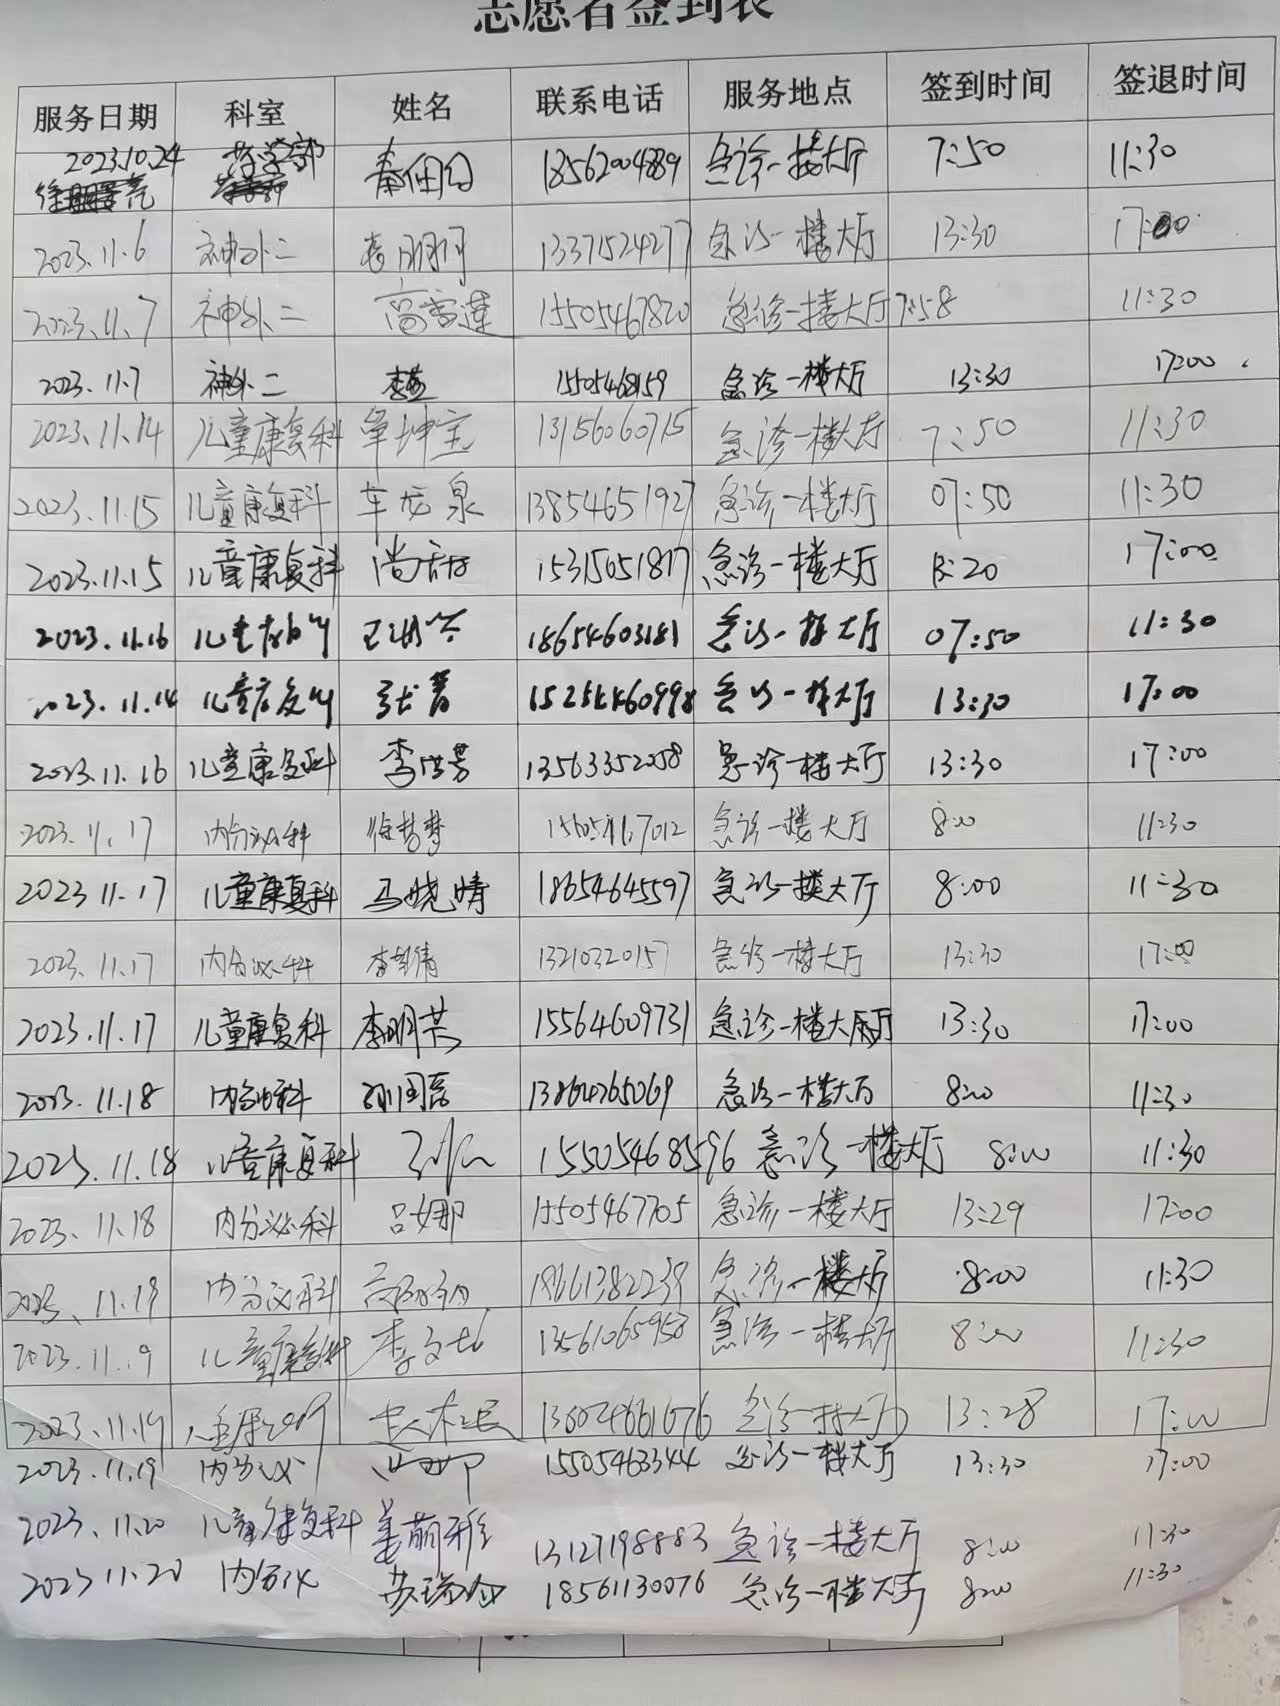 志愿者签到表
服务日期 科室 姓名 联系电话 服务地点 签到时间 签退时间
2023.10.24 药学部 秦伟白 18562004889 急诊一楼大厅 7:50 11:30
2023.11.6 神外二 13371524277 急诊一楼大厅 13:30
2023.11.7 神外二 高雪莲 15505467820 急诊一楼大厅 7:58 11:30
2023.11.7 神外二 15505468159 急诊一楼大厅 13:30 17:00
2023.11.14 儿童康复科 单坤宝 13156060715 急诊一楼大厅 7:50 11:30
2023.11.15 儿童康复科 车龙泉 13854651927 急诊一楼大厅 07:50 11:30
2023.11.15 儿童康复科 尚甜 15315051817 急诊一楼大厅 13:20 17:00
2023.11.16 儿童康复科 18654603181 急诊一楼大厅 07:50 11:30
2023.11.14 儿童康复科 张菁 急诊一楼大厅 13:30 17:00
2023.11.16 儿童康复科 李洪芳 13563352058 急诊一楼大厅 13:30 17:00
2023.11.17 内分泌科 徐梦梦 急诊一楼大厅 8:00 11:30
2023.11.17 儿童康复科 马晓晴 18654645597 急诊一楼大厅 8:00 11:30
2023.11.17 内分泌科 李梦倩 13210320157 急诊一楼大厅 13:30 17:00
2023.11.17 儿童康复科 李明芸 15564609731 急诊一楼大厅 13:30 17:00
2023.11.18 内分泌科 孙国磊 13864265069 急诊一楼大厅 8:00 11:30
2023.11.18 儿童康复科 15505468596 急诊一楼大厅 8:00 11:30
2023.11.18 内分泌科 吕娜 15505467705 急诊一楼大厅 13:29 17:00
2023.11.19 内分泌科 18661382239 急诊一楼大厅 8:00 11:30
2023.11.19 儿童康复科 李文 13561065958 急诊一楼大厅 8:00 11:30
2023.11.19 儿童康复科 急诊一楼大厅 13:28 17:00
2023.11.19 内分泌 15505463344 急诊一楼大厅 13:30 17:00
2023.11.20 儿童康复科 姜萌雅 13127198883 急诊一楼大厅 8:00 11:30
2023.11.20 内分泌 18561130076 急诊一楼大厅 8:00 11:30